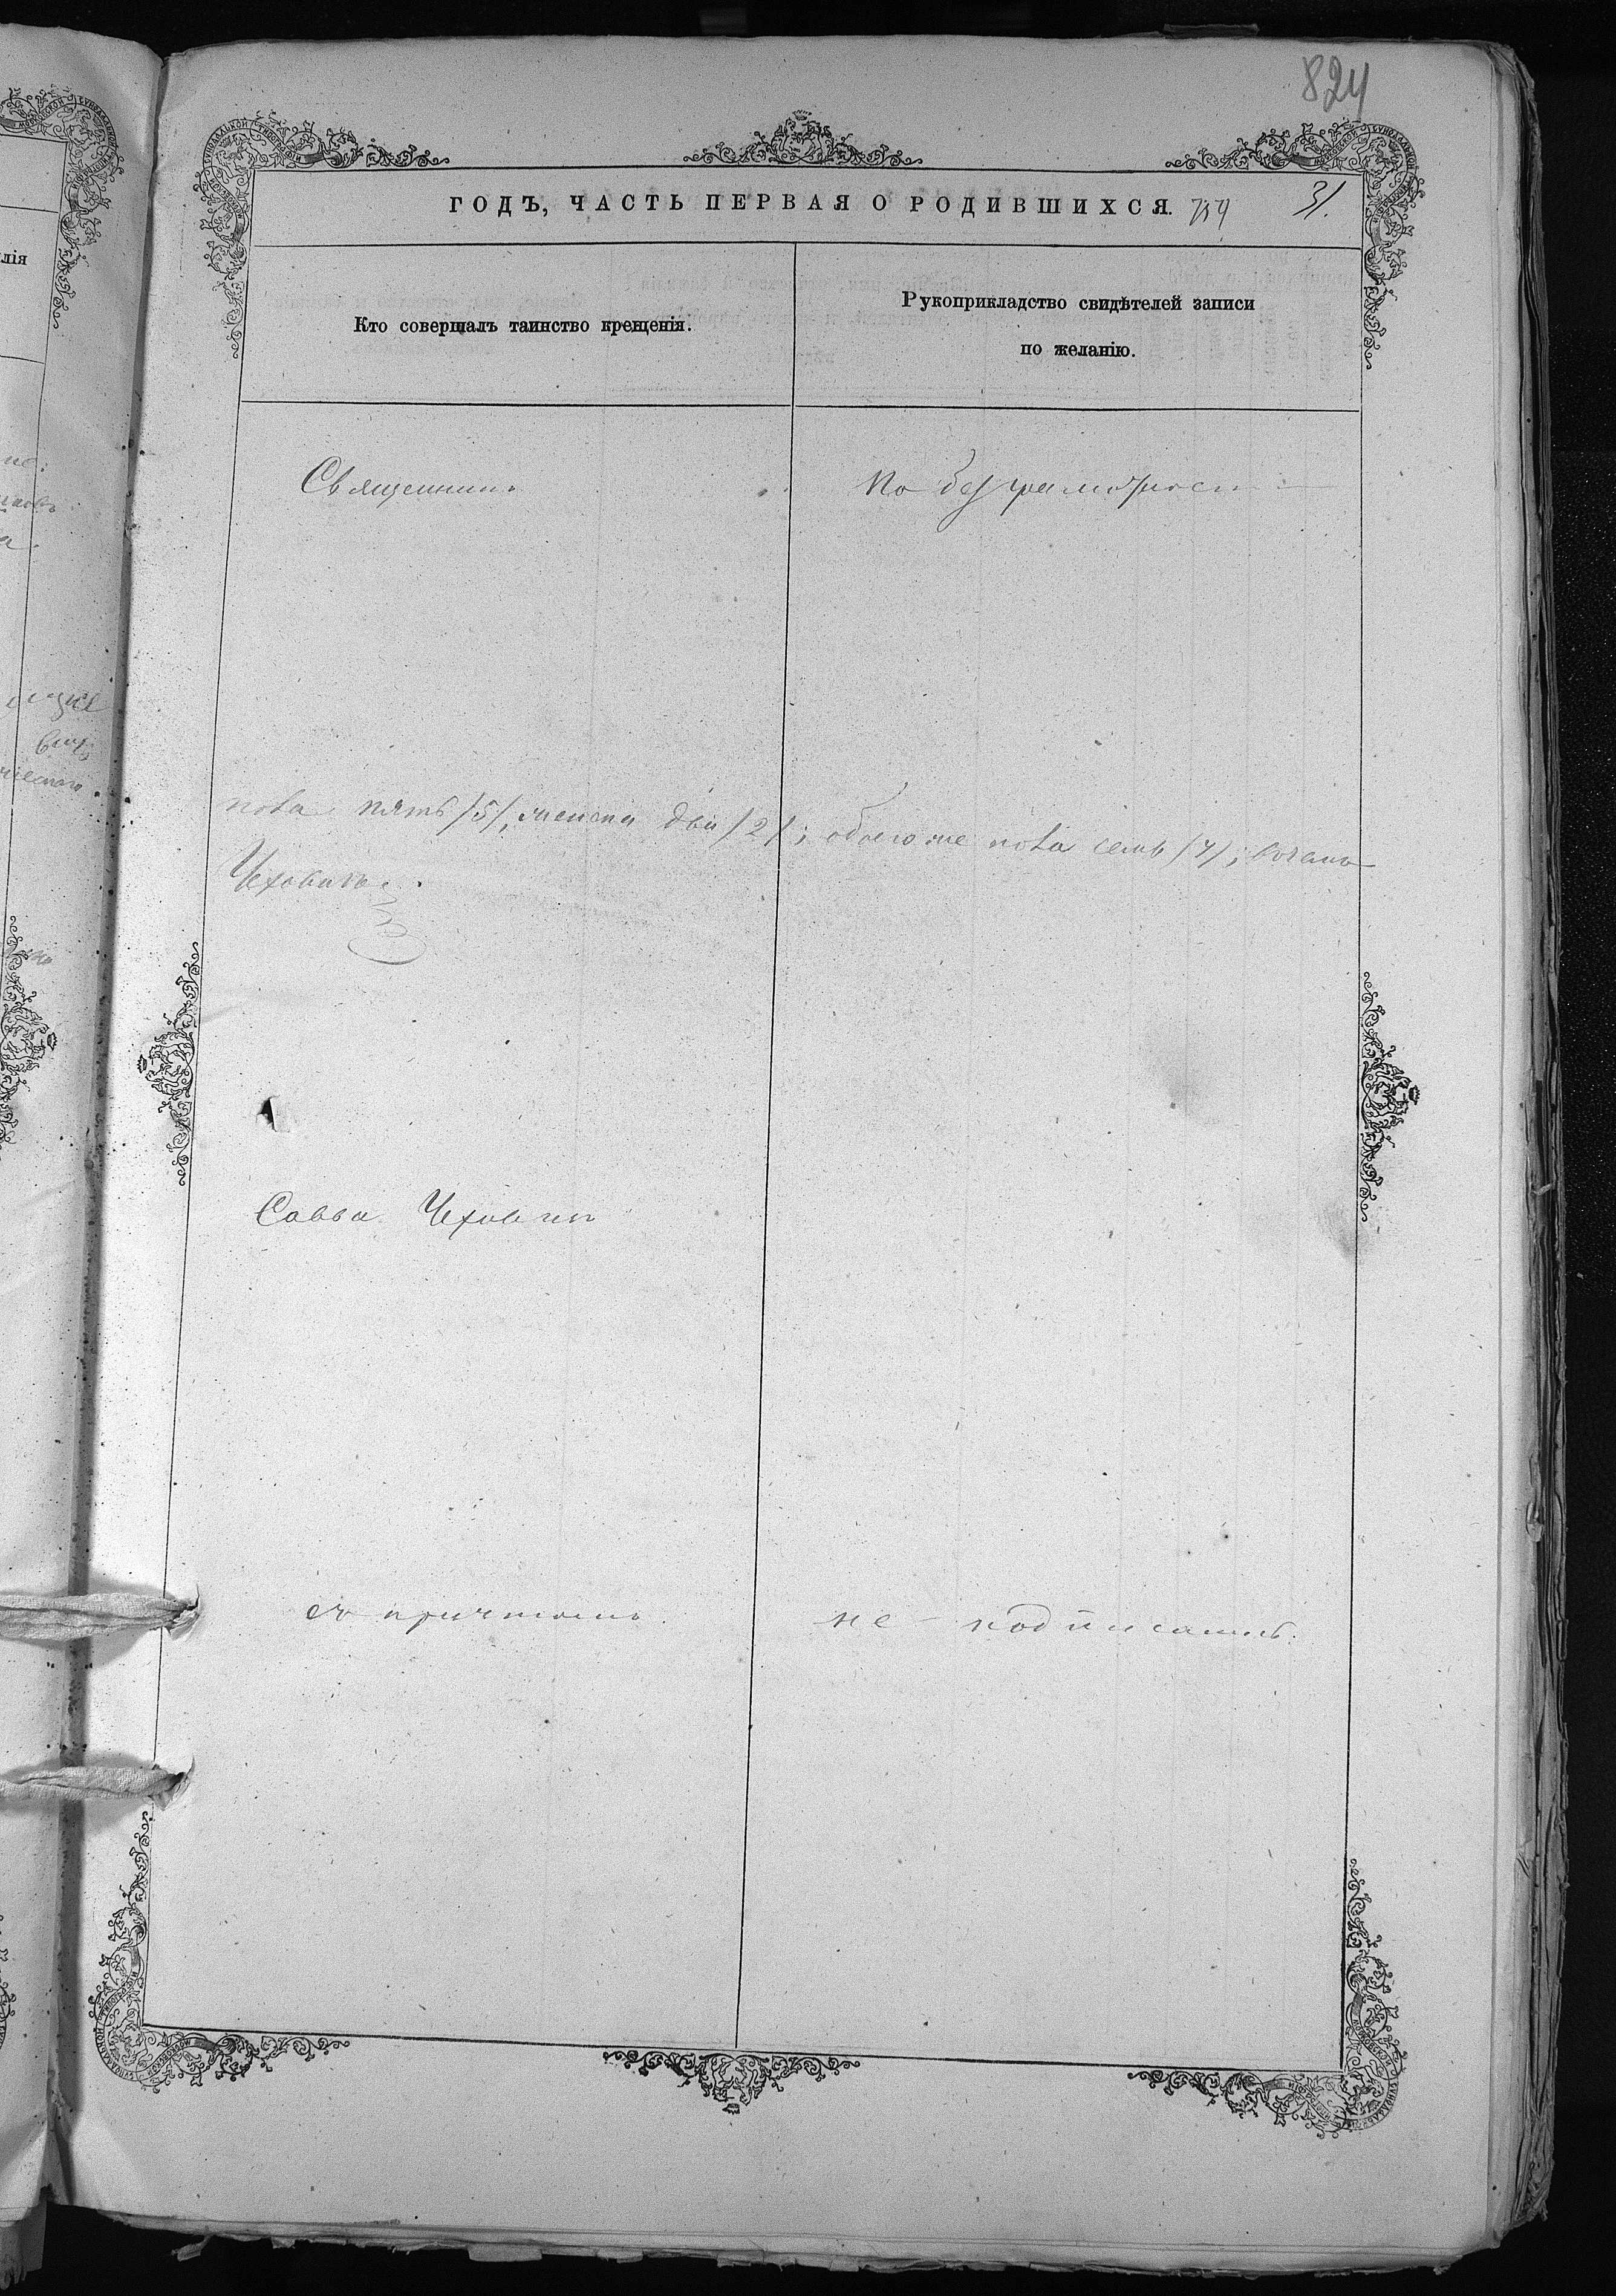 824
ГОДЪ, ЧАСТЬ ПЕРВАЯ О РОДИВШИХСЯ. 31.
Кто совершалъ таинство крещенія.
Рукоприкладство свидѣтелей записи
по желанію.
Священникъ
по безграмотности
пола пять /5/, женска два /2/; обоего же пола семь /7/;
Чеховичъ.
Савва Чеховичъ
съ причтомъ.
не подписались.
лія